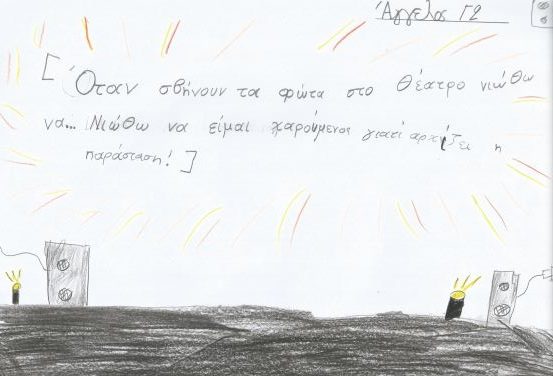 Άγγελος Γ2
[Όταν σβήνουν τα φώτα στο θέατρο νιώθω
να... Νιώθω να είμαι χαρούμενος γιατί αρχίζει η
παράσταση!]